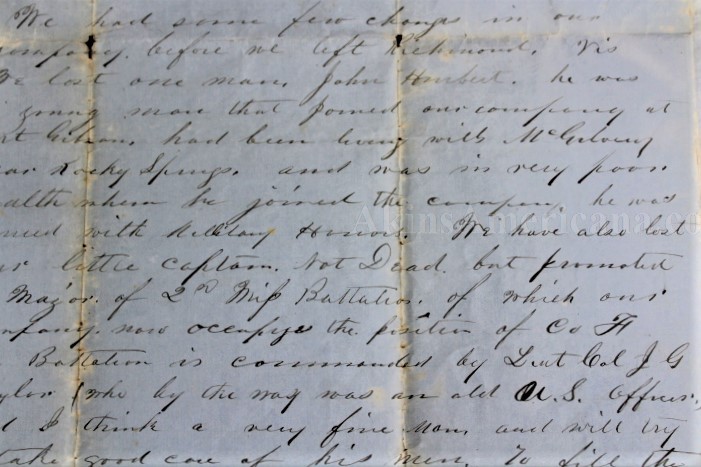 We had some few changes in our
company before we left Richmond, Vis
We lost one man, John Humbert. he was
young man that joined our company at
Gibson, had been living with McGilvery
Rocky Springs. and was in very poor
health when he joined the company. he was
with Military Honors. We have also lost
our little captain. Not Dead. but promoted
Major. of 2nd Miss Battalion. of which our
company. now occupys the position of Co H
Battalion is commanded by Lieut Col J G
Taylor (who by the way was an old U.S. Officer,)
I think a very fine Man, and will try
take good care of his men. To fill the
AkinsAmericana.co